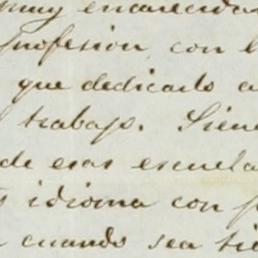 muy encarecida
profesion con l
que dedicarlo a
trabajo. Siene
de esas escuela
idioma con
cuando sea tie